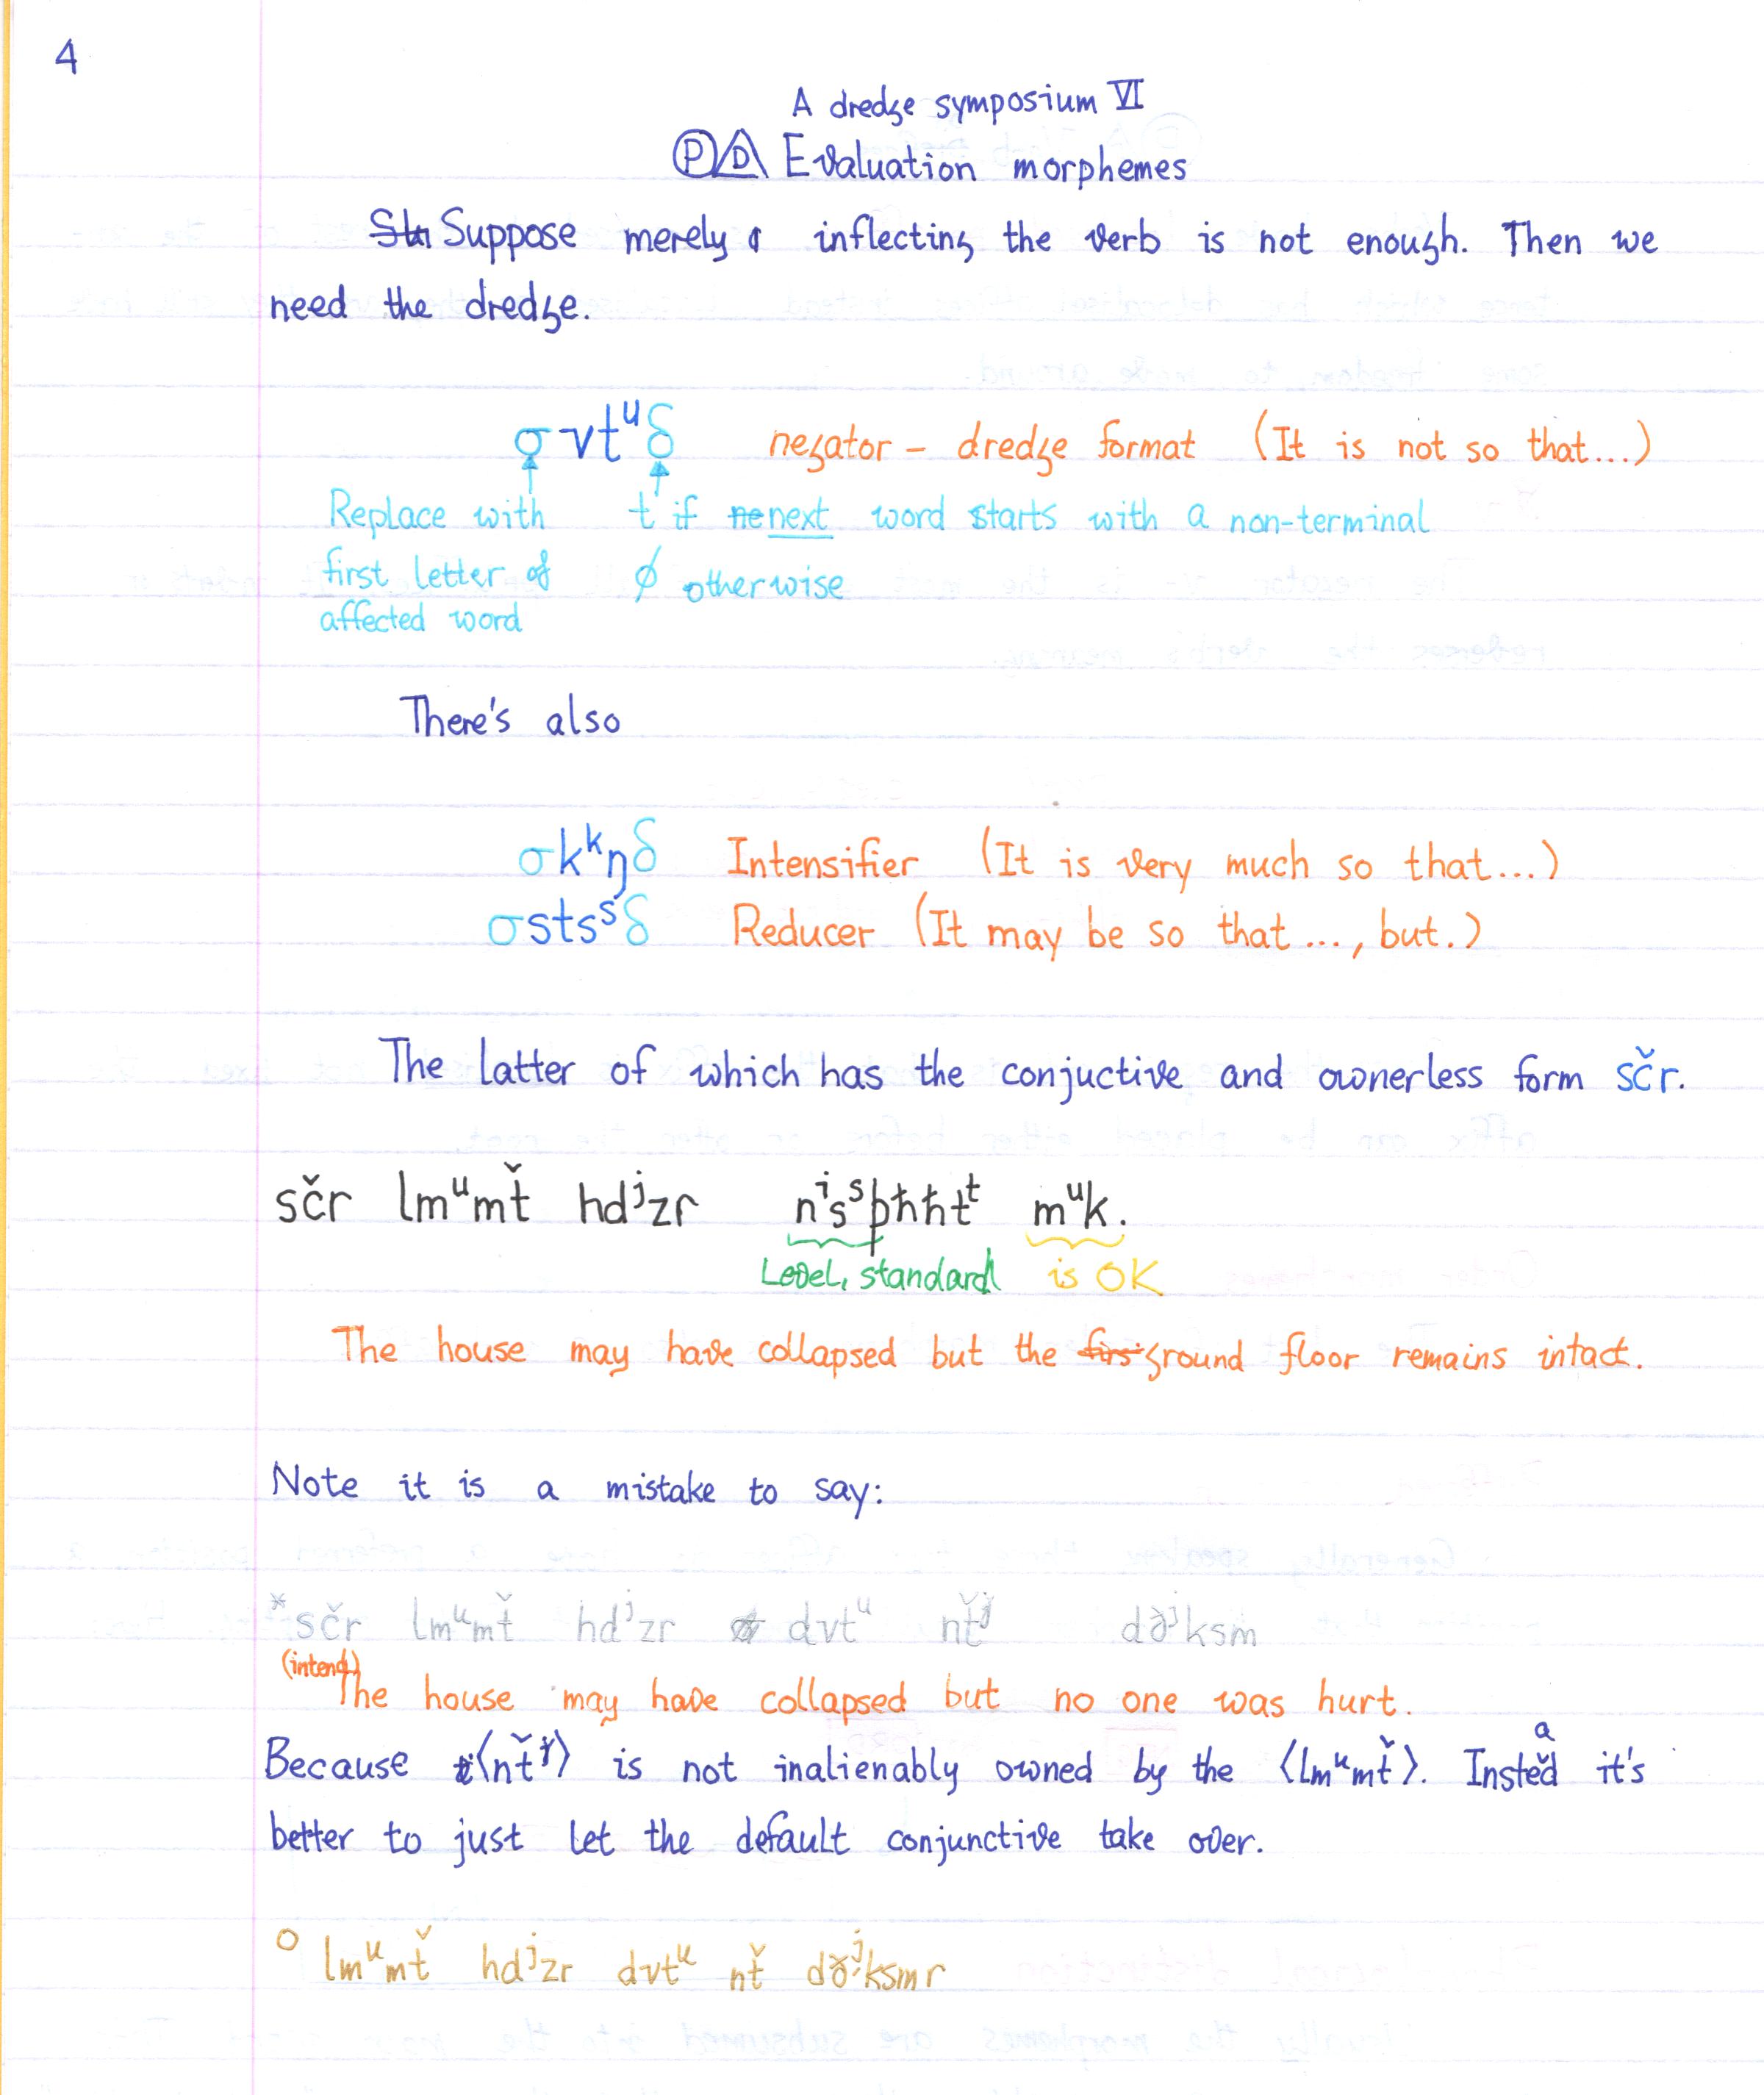 4
A dredge symposium VI
P D Evaluation morphemes
Suppose merely inflecting the verb is not enough. Then we
need the dredge.
σvtᵘδ negator – dredge format (It is not so that...)
Replace with t if next word starts with a non-terminal
first letter of ∅ otherwise
affected word
There's also
σkᵏŋδ Intensifier (It is very much so that...)
σstsˢδ Reducer (It may be so that..., but.)
The latter of which has the conjuctive and ownerless form sčr.
sčr lmᵘmť hdʲzr nⁱsˢþħħŧᵗ mᵘk.
Level, standard is OK
The house may have collapsed but the ground floor remains intact.
Note it is a mistake to say:
*sčr lmᵘmť hdʲzr dvtᵘ nťʲ dðʲksm
(intend)
The house may have collapsed but no one was hurt.
Because ⟨nťʲ⟩ is not inalienably owned by the ⟨lmᵘmť⟩. Instead it's
better to just let the default conjunctive take over.
○ lmᵘmť hdʲzr dvtᵘ nť dðʲksmr